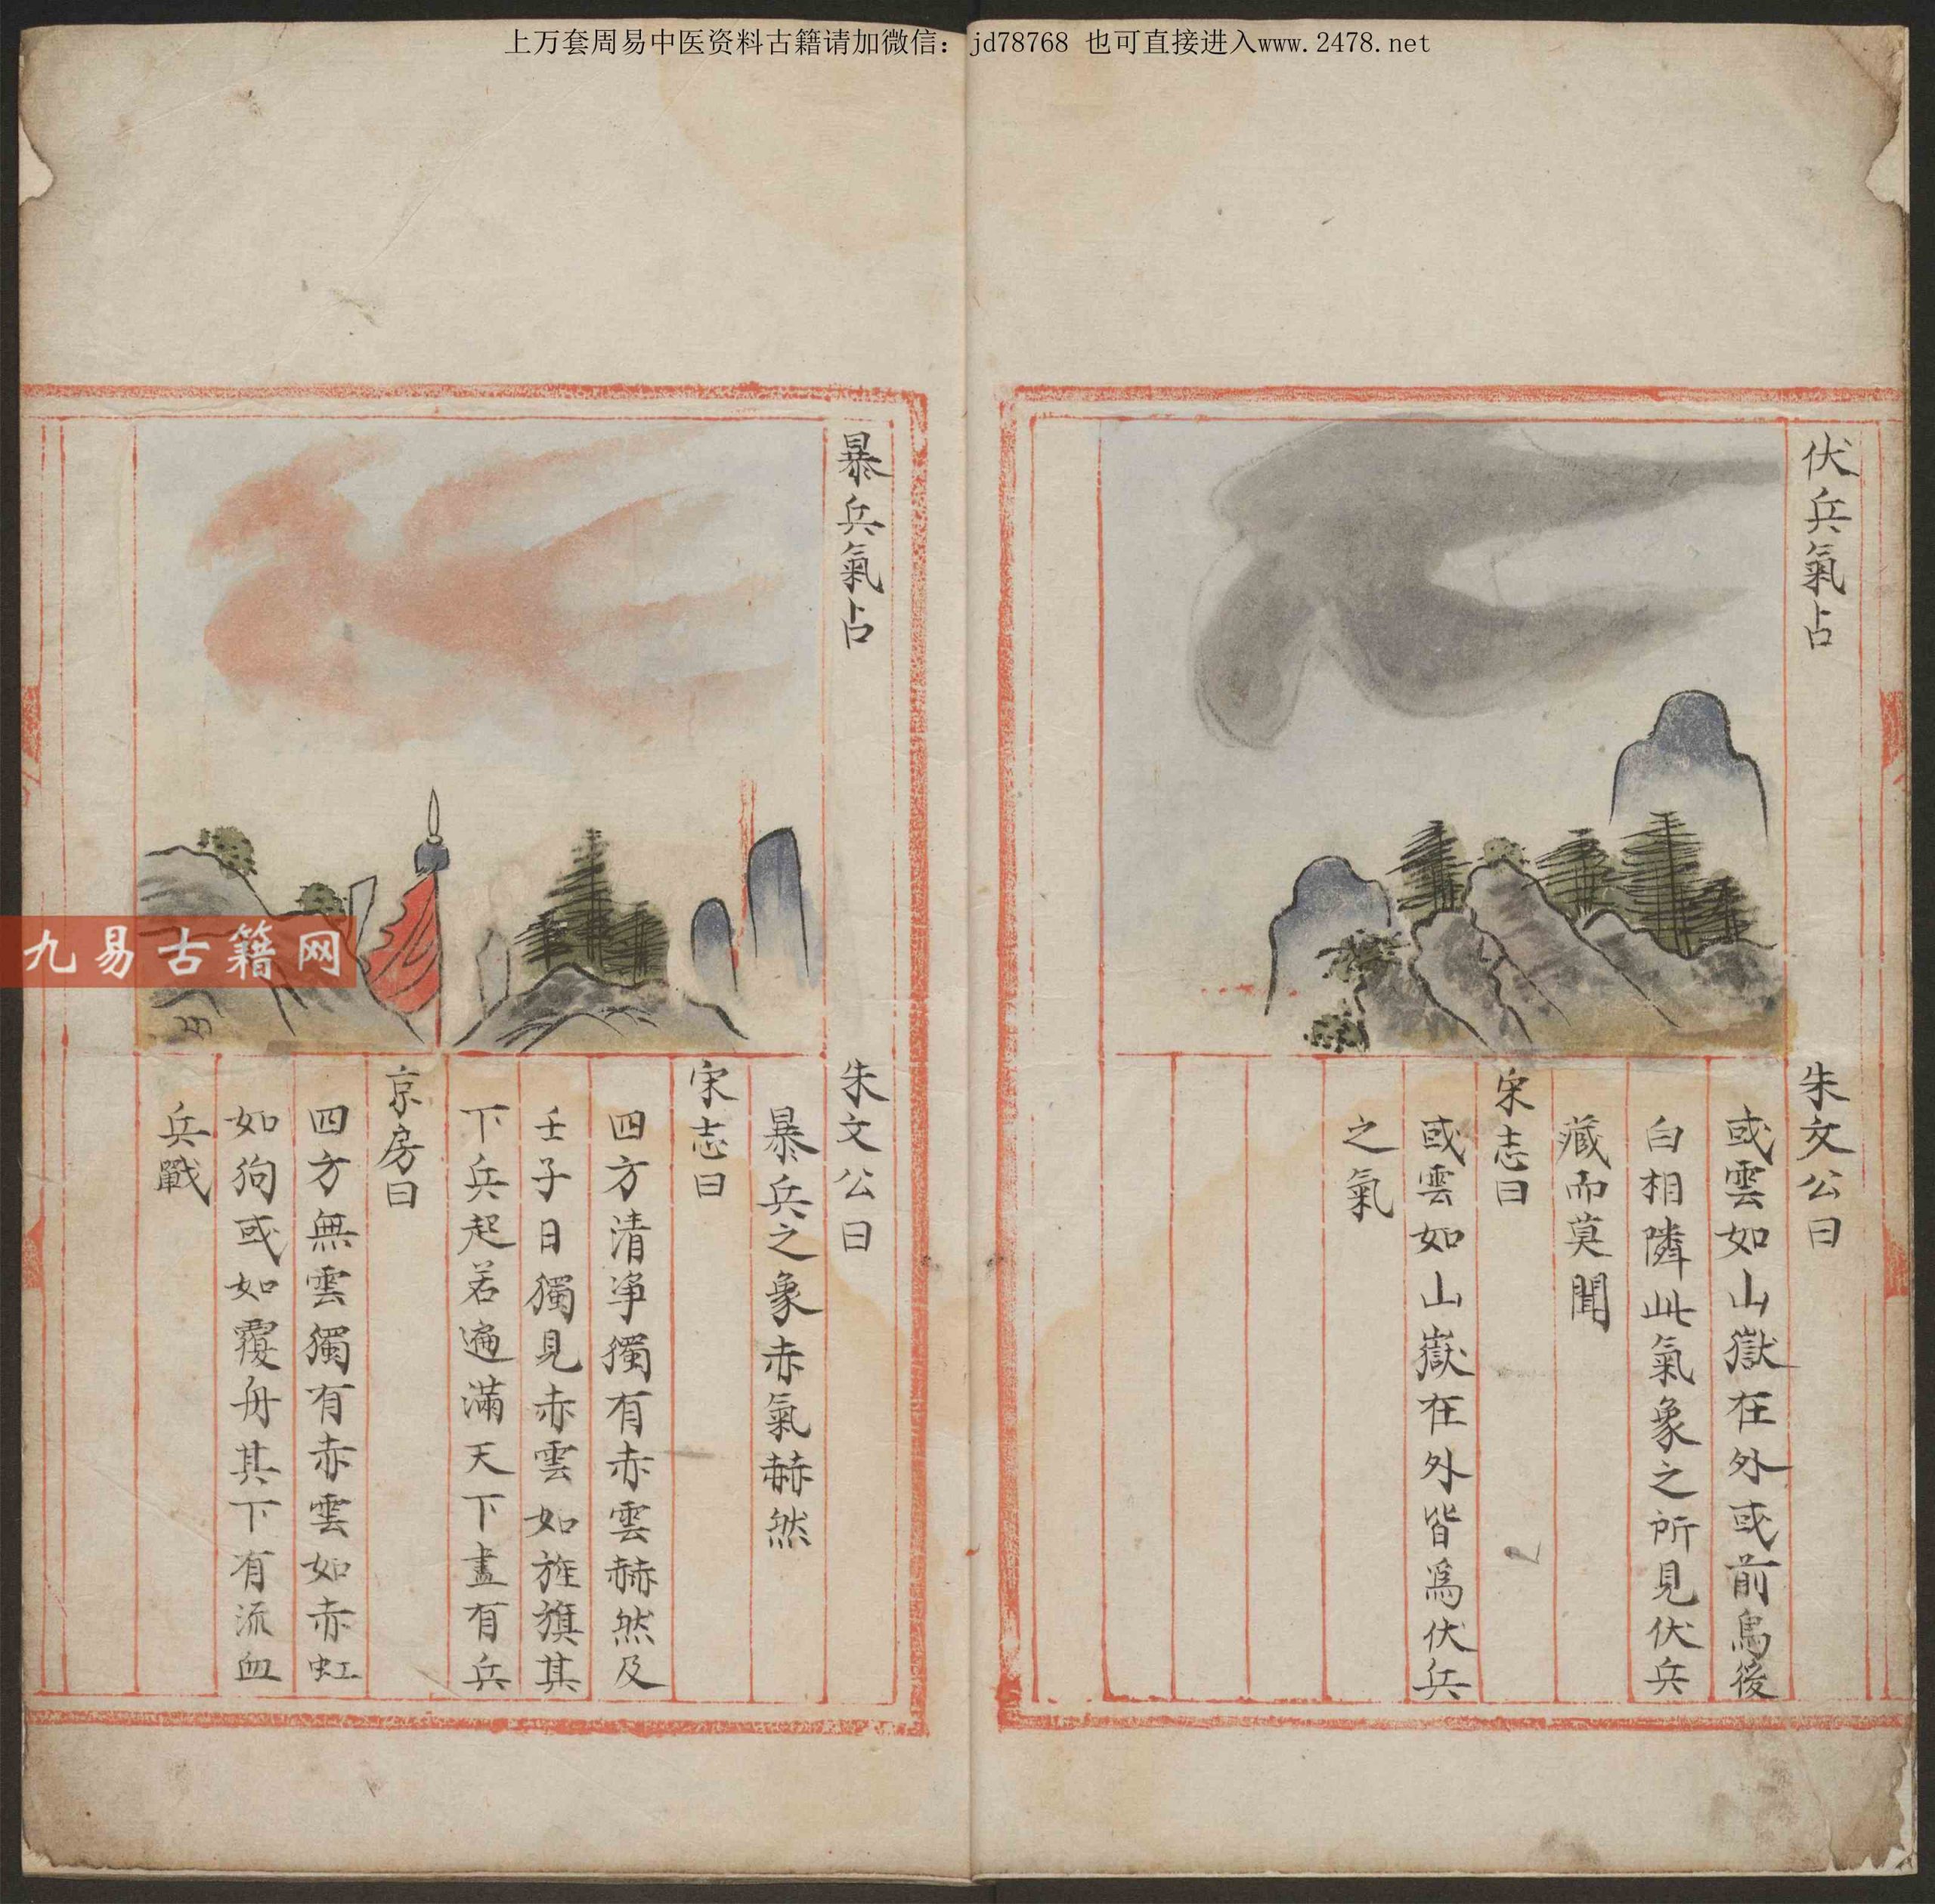 上万套周易中医资料古籍请加微信：jd78768 也可直接进入www.2478.net
伏兵氣占
朱文公曰
或雲如山嶽在外或前烏後
白相隣此氣象之所見伏兵
藏而莫聞
宋志曰
或雲如山嶽在外皆爲伏兵
之氣
暴兵氣占
朱文公曰
暴兵之象赤氣赫然
宋志曰
四方清净獨有赤雲赫然及
壬子日獨見赤雲如旌旗其
下兵起若遍滿天下盡有兵
京房曰
四方無雲獨有赤雲如赤虹
如狗或如覆舟其下有流血
兵戰
九易古籍网